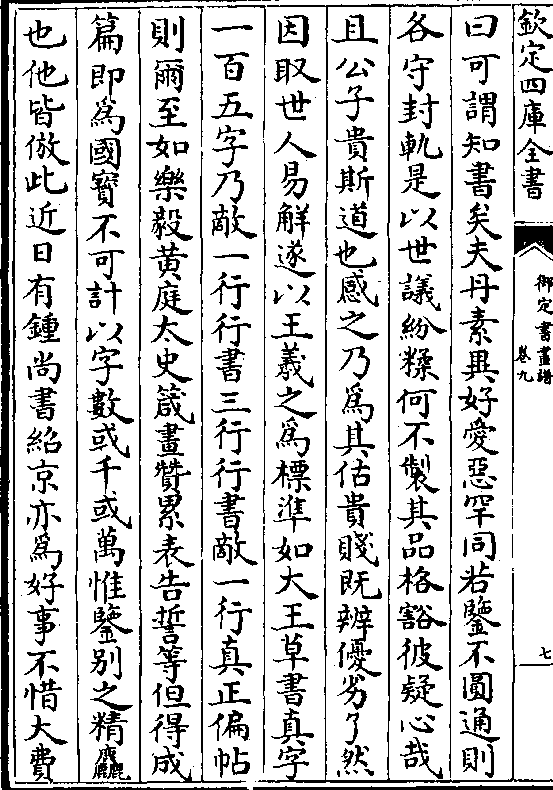 欽定四庫全書
御定書畫譜
卷九
七
曰可謂知書矣夫丹素異好愛惡罕同若鑒不圓通則
各守封軌是以世議紛糅何不製其品格豁彼疑心哉
且公子貴斯道也感之乃為其估貴賤既辨優劣了然
因取世人易解遂以王羲之為標準如大王草書真字
一百五字乃敵一行行書三行行書敵一行真正偏帖
則爾至如樂毅黄庭太史箴畫贊累表告誓等但得成
篇即為國寶不可計以字數或千或萬惟鑒别之精麤
也他皆倣此近日有鍾尚書紹京亦為好事不惜大費